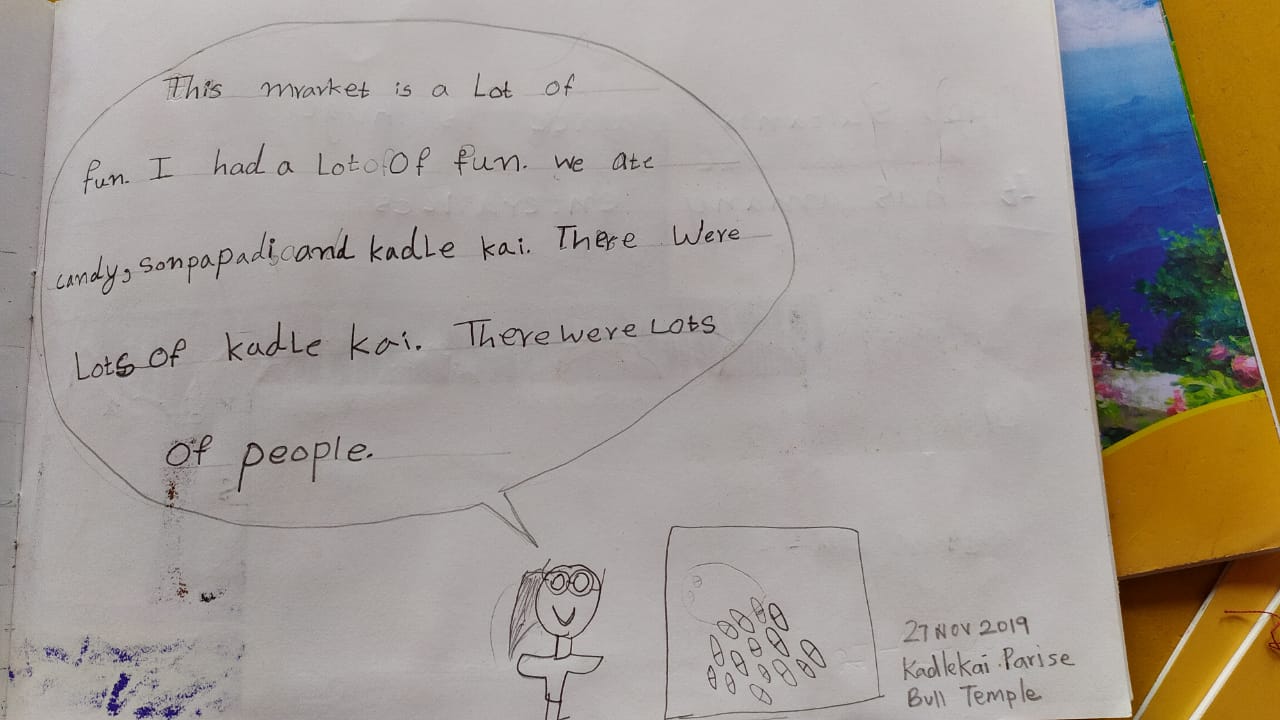 This mrarket is a Lot of
fun. I had a Lot Of fun. we ate
candy, sonpapadi, and kadle kai. There Were
Lots Of kadle kai. There were Lots
Of people.
27 NOV 2019
Kadlekai Parise
Bull Temple